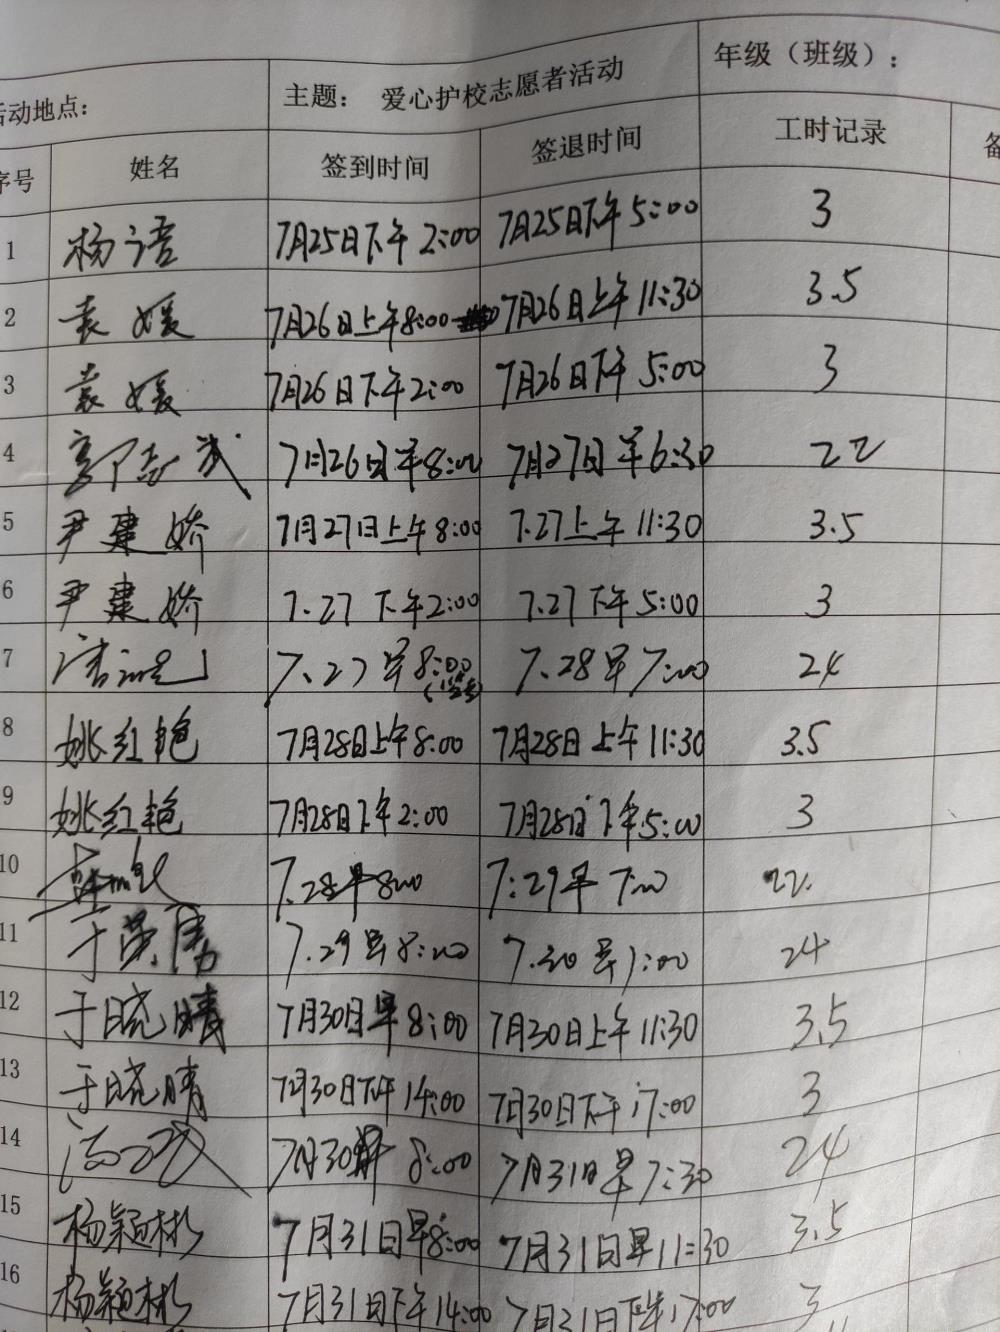 活动地点： 主题： 爱心护校志愿者活动 年级（班级）：
序号 姓名 签到时间 签退时间 工时记录 备
1 杨语 7月25日下午2:00 7月25日下午5:00 3
2 袁媛 7月26日上午8:00 7月26日上午11:30 3.5
3 袁媛 7月26日下午2:00 7月26日下午5:00 3
4 7月26日早8:00 7月27日早6:30 22
5 尹建娇 7月27日上午8:00 7.27上午11:30 3.5
6 尹建娇 7.27下午2:00 7.27下午5:00 3
7 7.27早8:00 7.28早7:00 24
8 姚红艳 7月28日上午8:00 7月28日上午11:30 3.5
9 姚红艳 7月28日下午2:00 7月28日下午5:00 3
10 7.28早8:00 7:29早7:00 22.
11 7.29早8:00 7.30早7:00 24
12 于晓晴 7月30日早8:00 7月30日上午11:30 3.5
13 于晓晴 7月30日下午14:00 7月30日下午17:00 3
14 7月30 8:00 7月31日早7:30 24
15 杨颖彬 7月31日早8:00 7月31日早11:30 3.5
16 杨颖彬 7月31日下午14:00 7月31日下午17:00 3